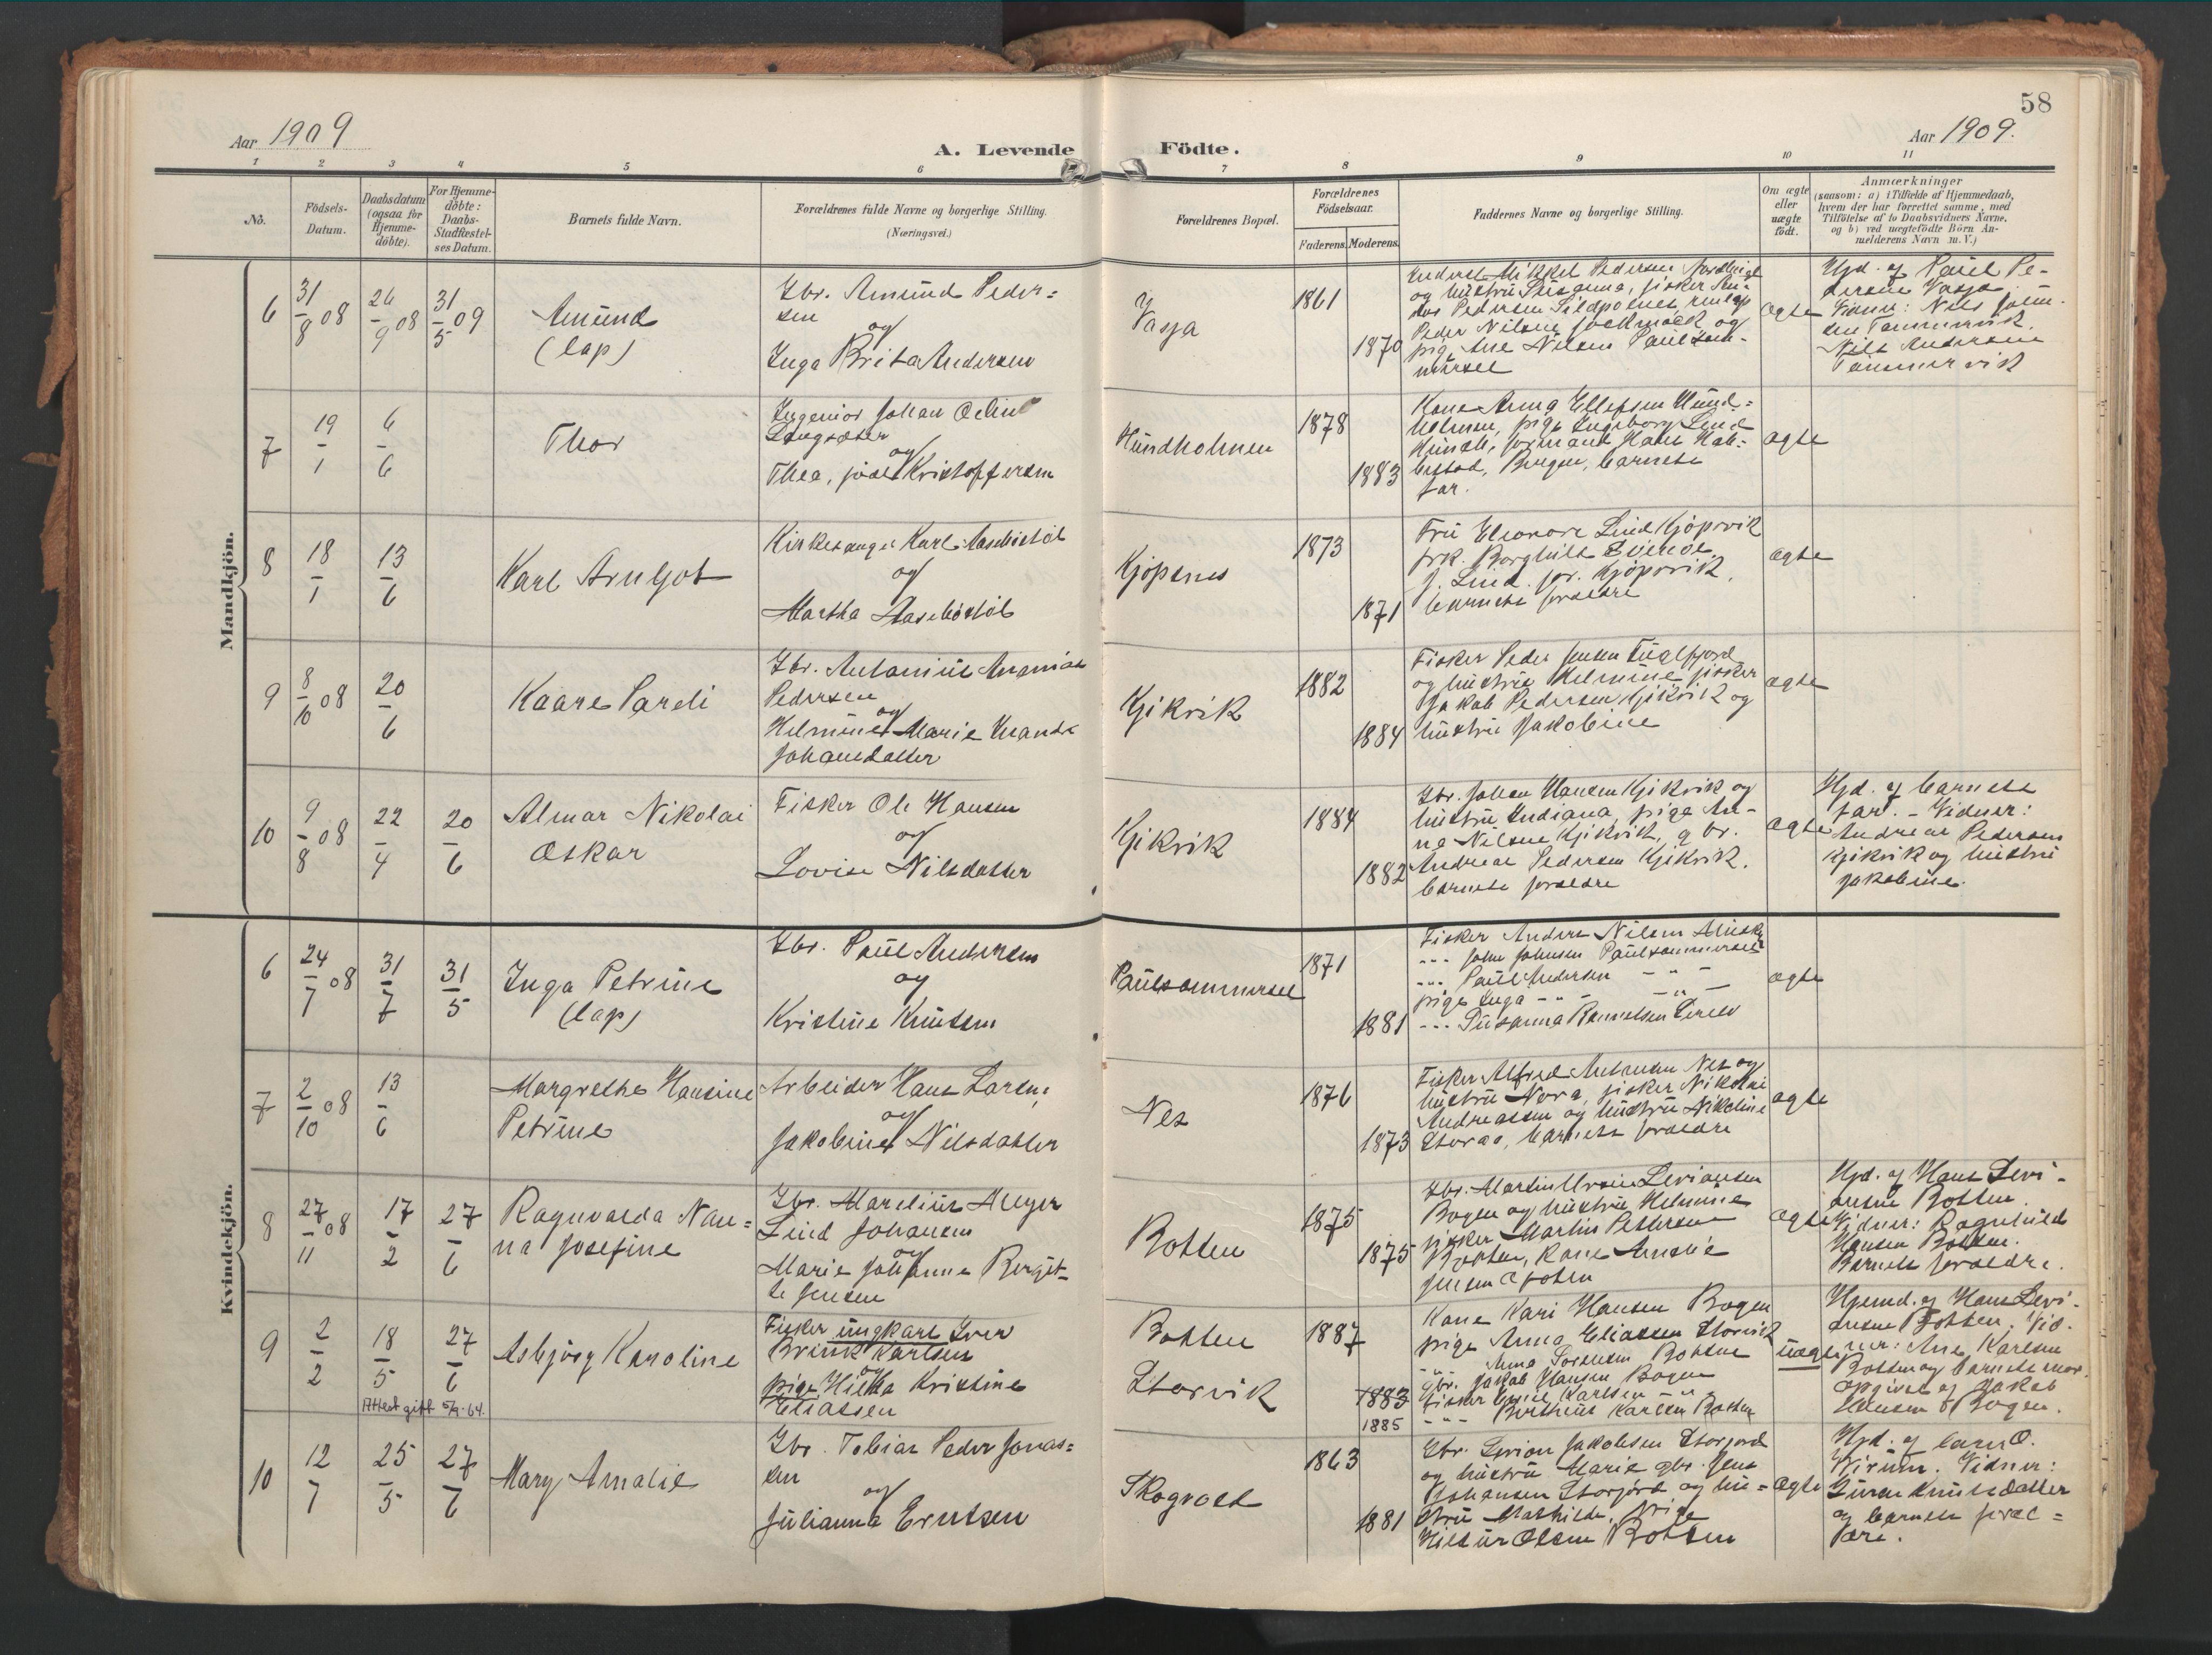 58
Aar 1909
A. Levende Födte.
Aar 1909.
1 2 3 4 5 6 7 8 9 10 11
No.
Födsels-Datum.
Daabsdatum (ogsaa for Hjemme-döbte).
For Hjemme-döbte: Daabs-Stadfæstel-ses Datum.
Barnets fulde Navn.
Forældrenes fulde Navne og borgerlige Stilling.
(Næringsvei.)
Forældrenes Bopæl.
Forældrenes Födselsaar.
Faderens. Moderens.
Faddernes Navne og borgerlige Stilling.
Om ægte eller uægte födt.
Anmærkninger
(saasom: a) i Tilfælde af Hjemmedaab,
hvem der har forrettet samme, med
Tilföielse af to Daabsvidners Navne.
og b) ved uægtefödte Börn An-
melderens Navn m. V.)
Mandkjön.
6
31/8 08
26/9 08
31/5 09
Amund
(lap)
Gbr. Amund Peder=
sen
og
Inga Brita Andersen
Vasja
1861
1870
og hustru Susanna, fisker
Peder Nilsen Jockmock og
pige Ane Nilsen
ægte
Hjd. af Paul Pe-
dersen Vasja.
Vidner: Nils John-
sen Tømmervik.
Nils Andersen
Tømmervik
7
19/1
6/6
Thor
Ingeniør Johan Odin
Langsæter
og
Thea, født Kristoffersen
Hundholmen
1878
1883
Kone Anna Ellefsen Hund=
holmen, pige Ingeborg Lind
formand Hans
Bergen, barnets
far.
ægte
8
18/1
13/6
Karl Arnljot
Kirkesanger Karl Aasebøstøl
og
Martha Aasebøstøl
Kjøpsnes
1873
1871
Fru Eleonore Lind Kjøpsvik
frk. Borghild
J. Lind. for. Kjøpsvik.
barnets forældre
ægte
9
8/10 08
20/6
Kaare Pareli
Gbr. Antonius Ananias
Pedersen
og
Helmine Marie
Johansdatter
Kjikvik
1882
1884
Fisker Peder Jensen Fuglfjord
og hustru Helmine fisker
Jakob Pedersen Kjikvik og
hustru Jakobine
ægte
10
9/8 08
22/4
20/6
Almar Nikolai
Oskar
Fisker Ole Hansen
og
Lovise Nilsdatter
Kjikvik
1884
1882
Gbr. Johan Hansen Kjikvik og
hustru Indiana, pige An-
na Nilsen Kjikvik, gbr.
Andreas Pedersen Kjikvik.
barnets forældre
ægte
Hjd. af barnets
far. - Vidner:
Andreas Pedersen
Kjikvik og hustru
Jakobine.
Kvindekjön.
6
24/7 08
31/7
31/5
Inga Petrine
(lap)
Gbr. Paul Andersen
og
Kristine Knutsen
Paulsommersel
1871
1881
Fisker Anders Nilsen
--- John Johnsen Paulsommersel
--- Paul Andersen - " -
pige Inga - - - " -
--- Susanna
ægte
7
2/10 08
13/6
Margrethe Hansine
Petrine
Arbeider Hans Larsen
og
Jakobine Nilsdatter
Nes
1876
1873
Fisker Alfred Antonsen Nes og
hustru Nora, fisker Nikolai
Andreassen og hustru Nikoline
Storaa, barnets forældre
ægte
8
27/11 08
17/2
27/6
Ragnvalda Nan=
na Josefine
Gbr. Marelius Meyer
Lind Johansen
og
Marie Johanne Bergit-
te Jensen
Botten
1875
1875
Gbr. Martin Levionsen
Bogen og hustru Helmine
fisker Martin Pettersen
Botten, kone Amalie
Jensen Botten
ægte
Hjd. af Hans Levi-
onsen Botten.
Vidner: Ragnhild
Hansen Botten.
Barnets forældre.
9
2/2
18/5
27/6
Attest gift 5/9-64.
Asbjørg Karoline
Fisker ungkarl Iver
Brink Karlsen
og
pige Hilda Kristine
Eliassen
Botten
Storvik
1887
1883
1885
Kone Kari Hansen Bogen
pige Anna Eliassen Storvik
--- Anna Sørensen Botten
gbr. Jakob Hansen Bogen
Fisker Emil Karlsen - " -
--- Karlsen Botten
uægte
Hjemd. af Hans Levi-
onsen Botten. Vid-
ner: Ane Karlsen
Botten og barnets mor
opgivet af Jakob
Hansen Bogen.
10
12/1
25/5
27/6
Mary Amalie
Gbr. Tobias Peder Jonas=
sen
og
Julianna Erntsen
Skogvold
1863
1881
Gbr. Levion Jakobsen Storjord
og hustru Marie gbr. Jens
Johansen Storjord og hu=
stru Mathilde, pige
Hildur Olsen Botten
ægte
Hjd. af barn O.
Vidner:
Knutsdatter
og barnets foræl=
dre.